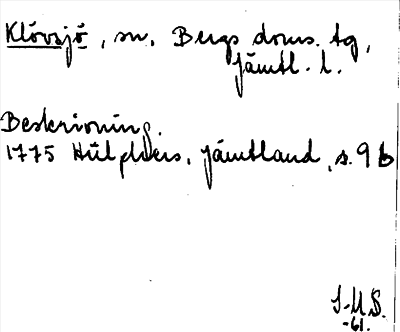 Klövsjö, sn, Bergs doms. tg,
Jämtl. l.
Beskrivning.
1775 Hülphers, Jämtland, s. 96
S.U.S.
-61.